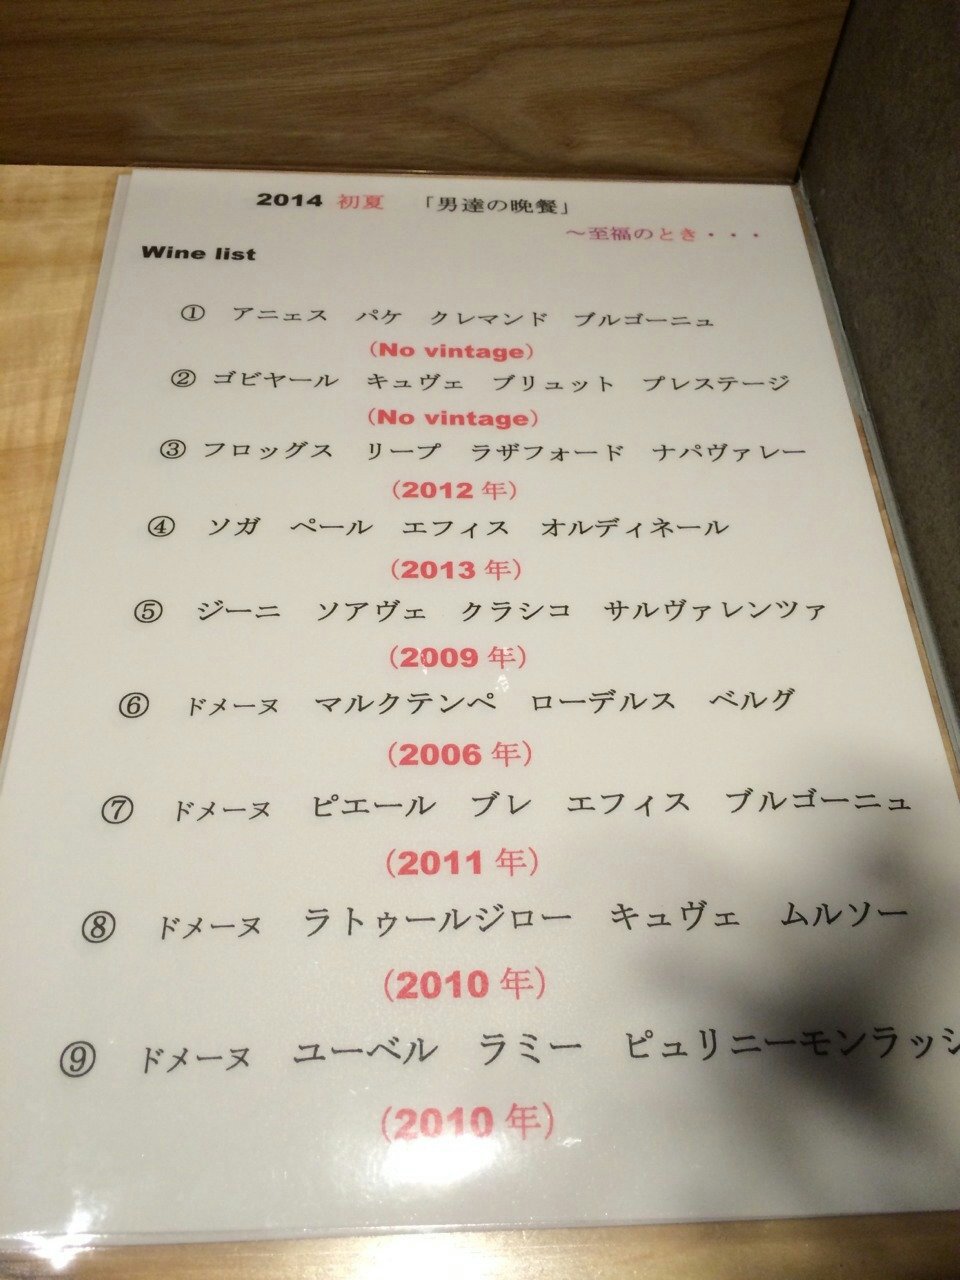 2014 初夏 「男達の晩餐」
～至福のとき・・・
Wine list
① アニェス パケ クレマンド ブルゴーニュ
(No vintage)
② ゴビヤール キュヴェ ブリュット プレステージ
(No vintage)
③ フロッグス リープ ラザフォード ナパヴァレー
(2012 年)
④ ソガ ペール エフィス オルディネール
(2013 年)
⑤ ジーニ ソアヴェ クラシコ サルヴァレンツァ
(2009 年)
⑥ ドメーヌ マルクテンペ ローデルス ベルグ
(2006 年)
⑦ ドメーヌ ピエール ブレ エフィス ブルゴーニュ
(2011 年)
⑧ ドメーヌ ラトゥールジロー キュヴェ ムルソー
(2010 年)
⑨ ドメーヌ ユーベル ラミー ピュリニーモンラッシ
(2010 年)